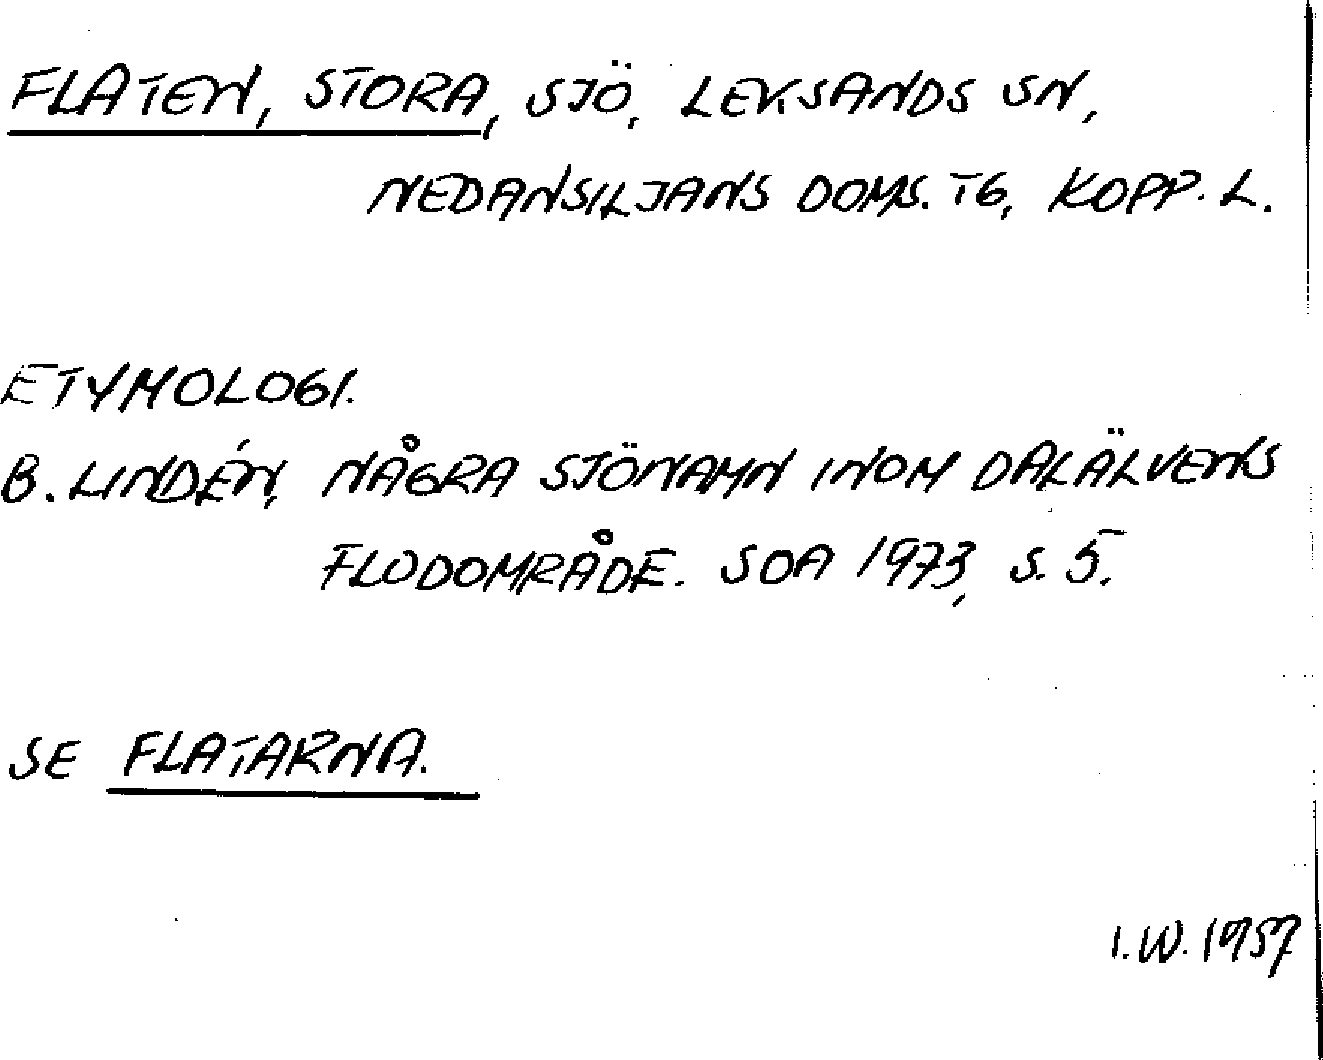 FLATEN, STORA, SJÖ, LEKSANDS SN,
NEDANSILJANS DOMS. TG, KOPP. L.
ETYMOLOGI.
B. LINDÉN, NÅGRA SJÖNAMN INOM DALÄLVENS
FLODOMRÅDE. SOA 1973, S. 5.
SE FLATARNA.
I.W.